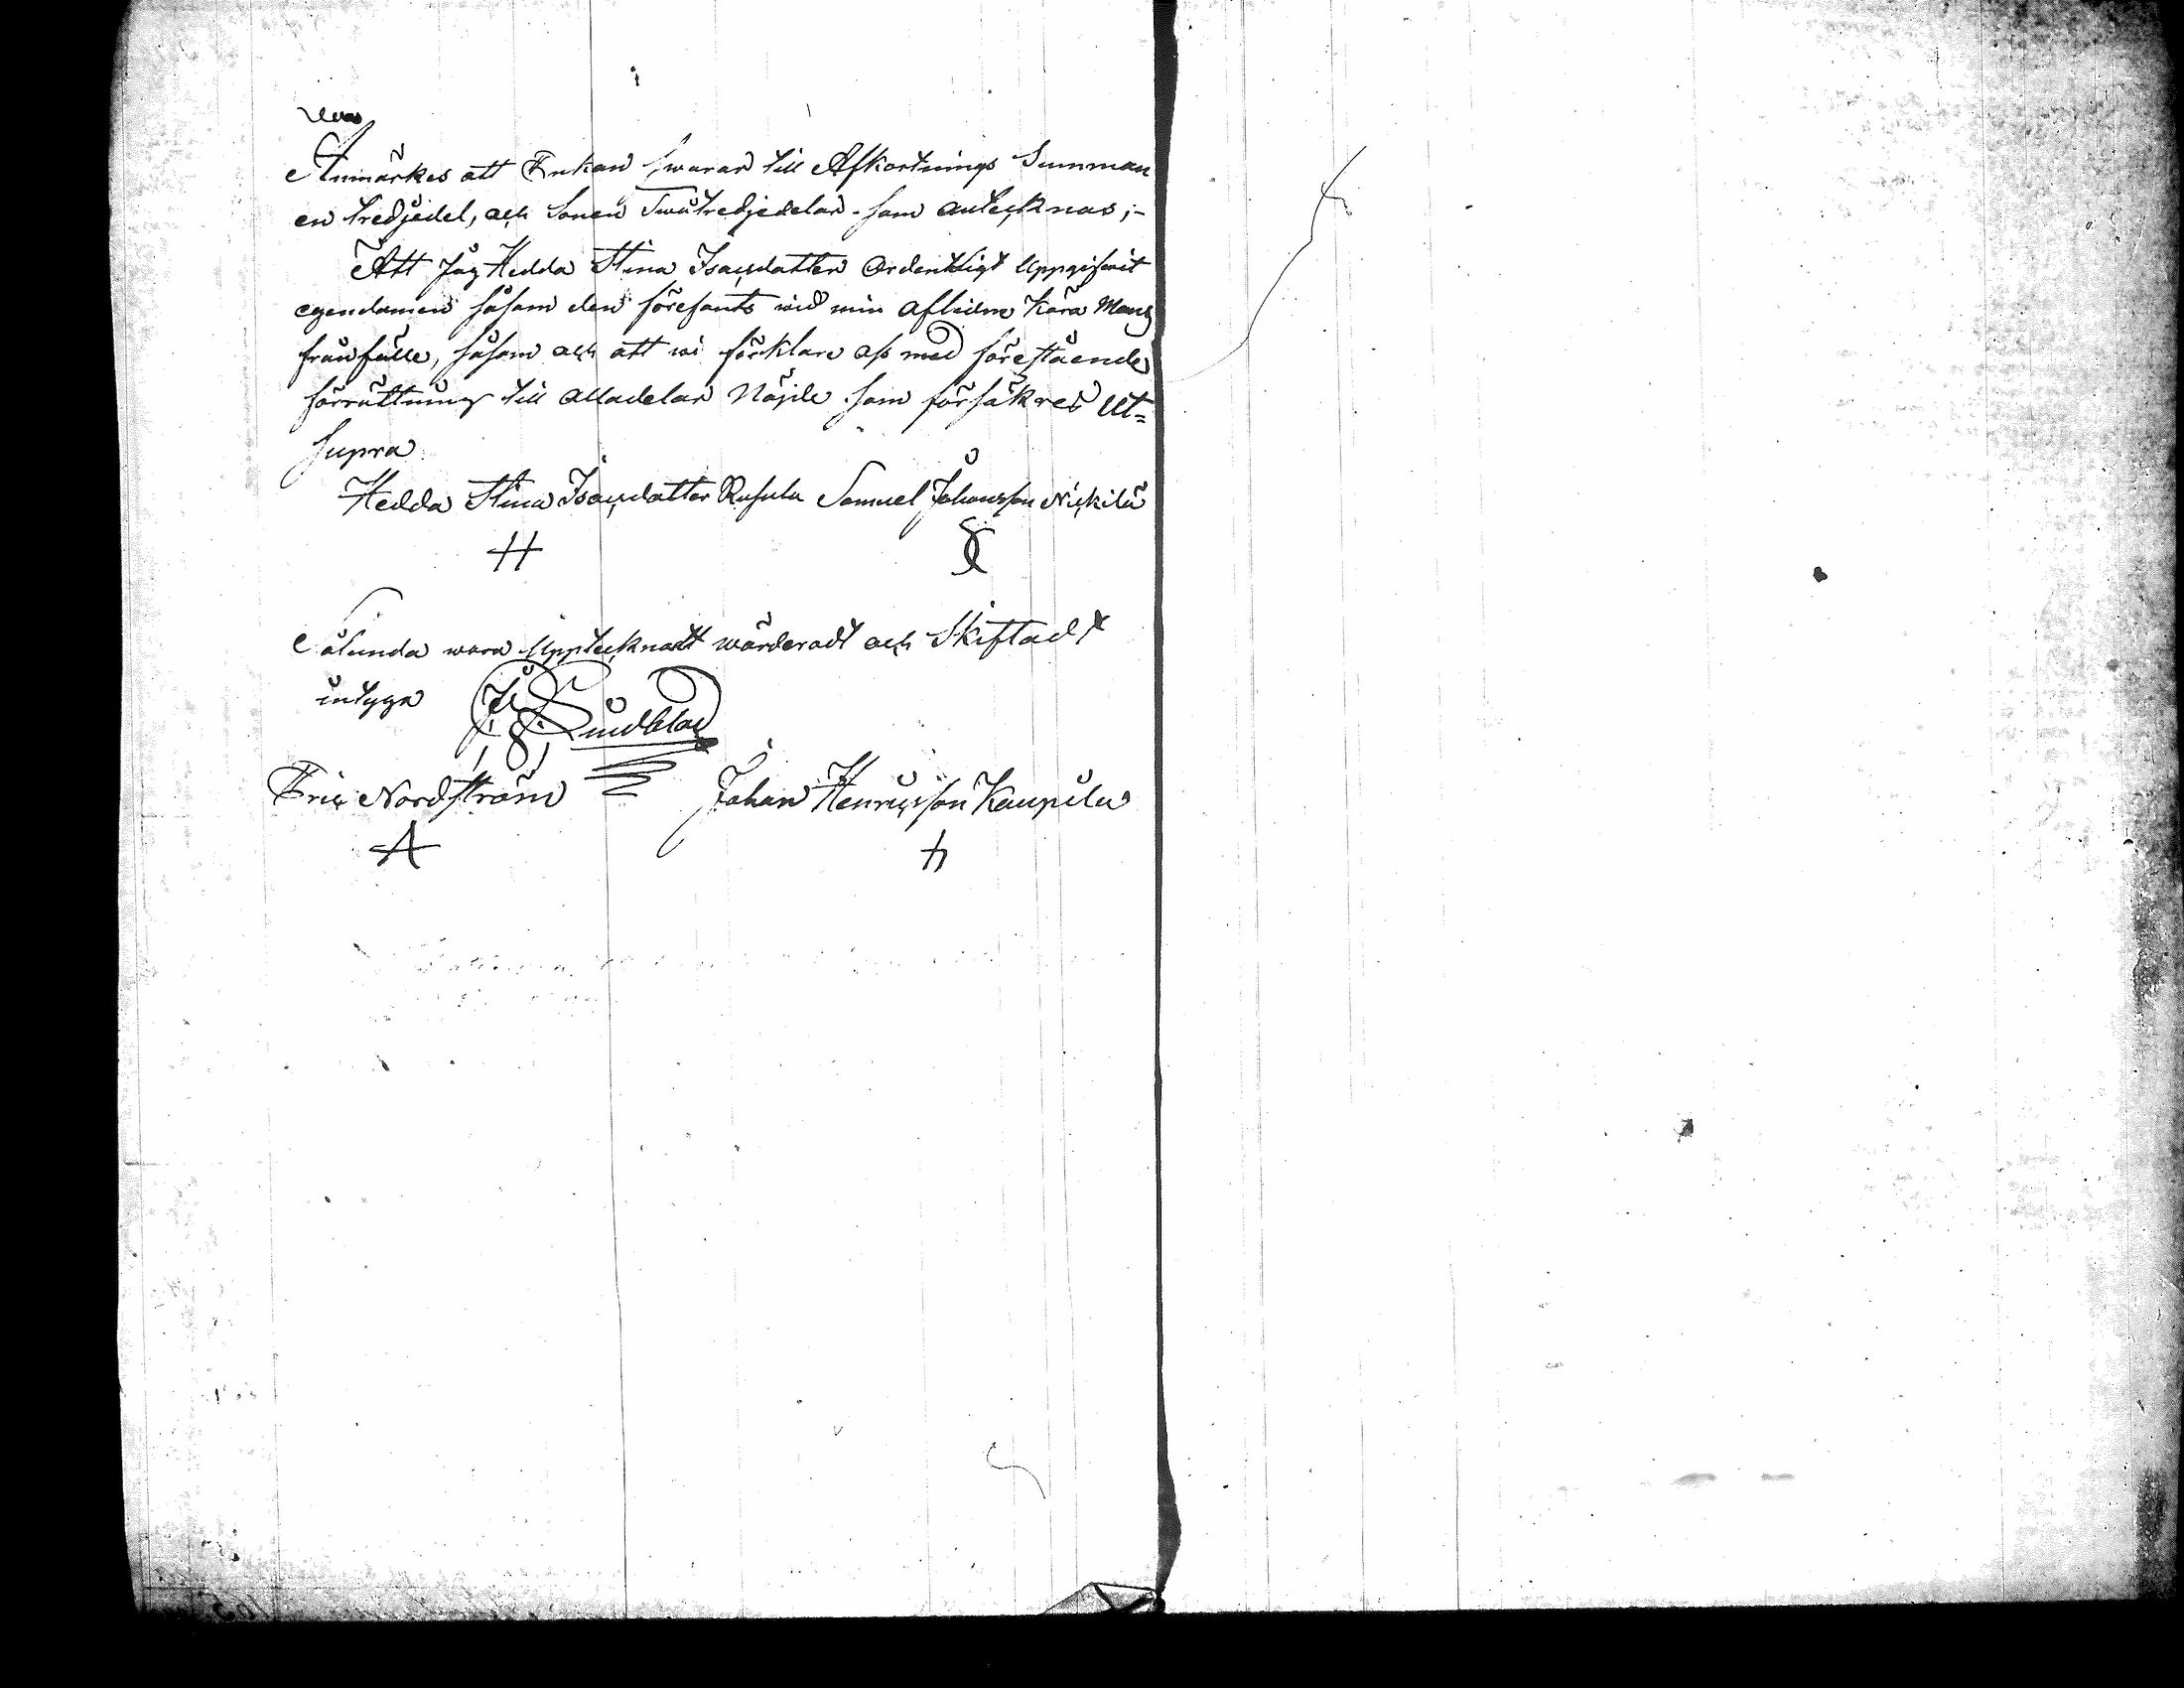 Anmärkes att Enkan swarar till Afkortnings Summan
en tredjedel, och Sonen Twåtredjedelar. som antecknas;-
Att Jag Hedda Stina Isacsdatter Ordentligt Uppgifwit
egendomen såsom den förefants wid min aflidne Kära Mans
frånfälle, såsom och att wi förklare oss med förestående
förrättning till alladelar Nöjde som försäkres Ut=
supra
Hedda Stina Isacsdatter Rusula Samuel Johansson Nickilä
H
Sålunda wara Upptecknadt wärderadt och Skiftadt
intyga J. Lindblad
Eric Nordström Johan Henricsson Kaupila
A h